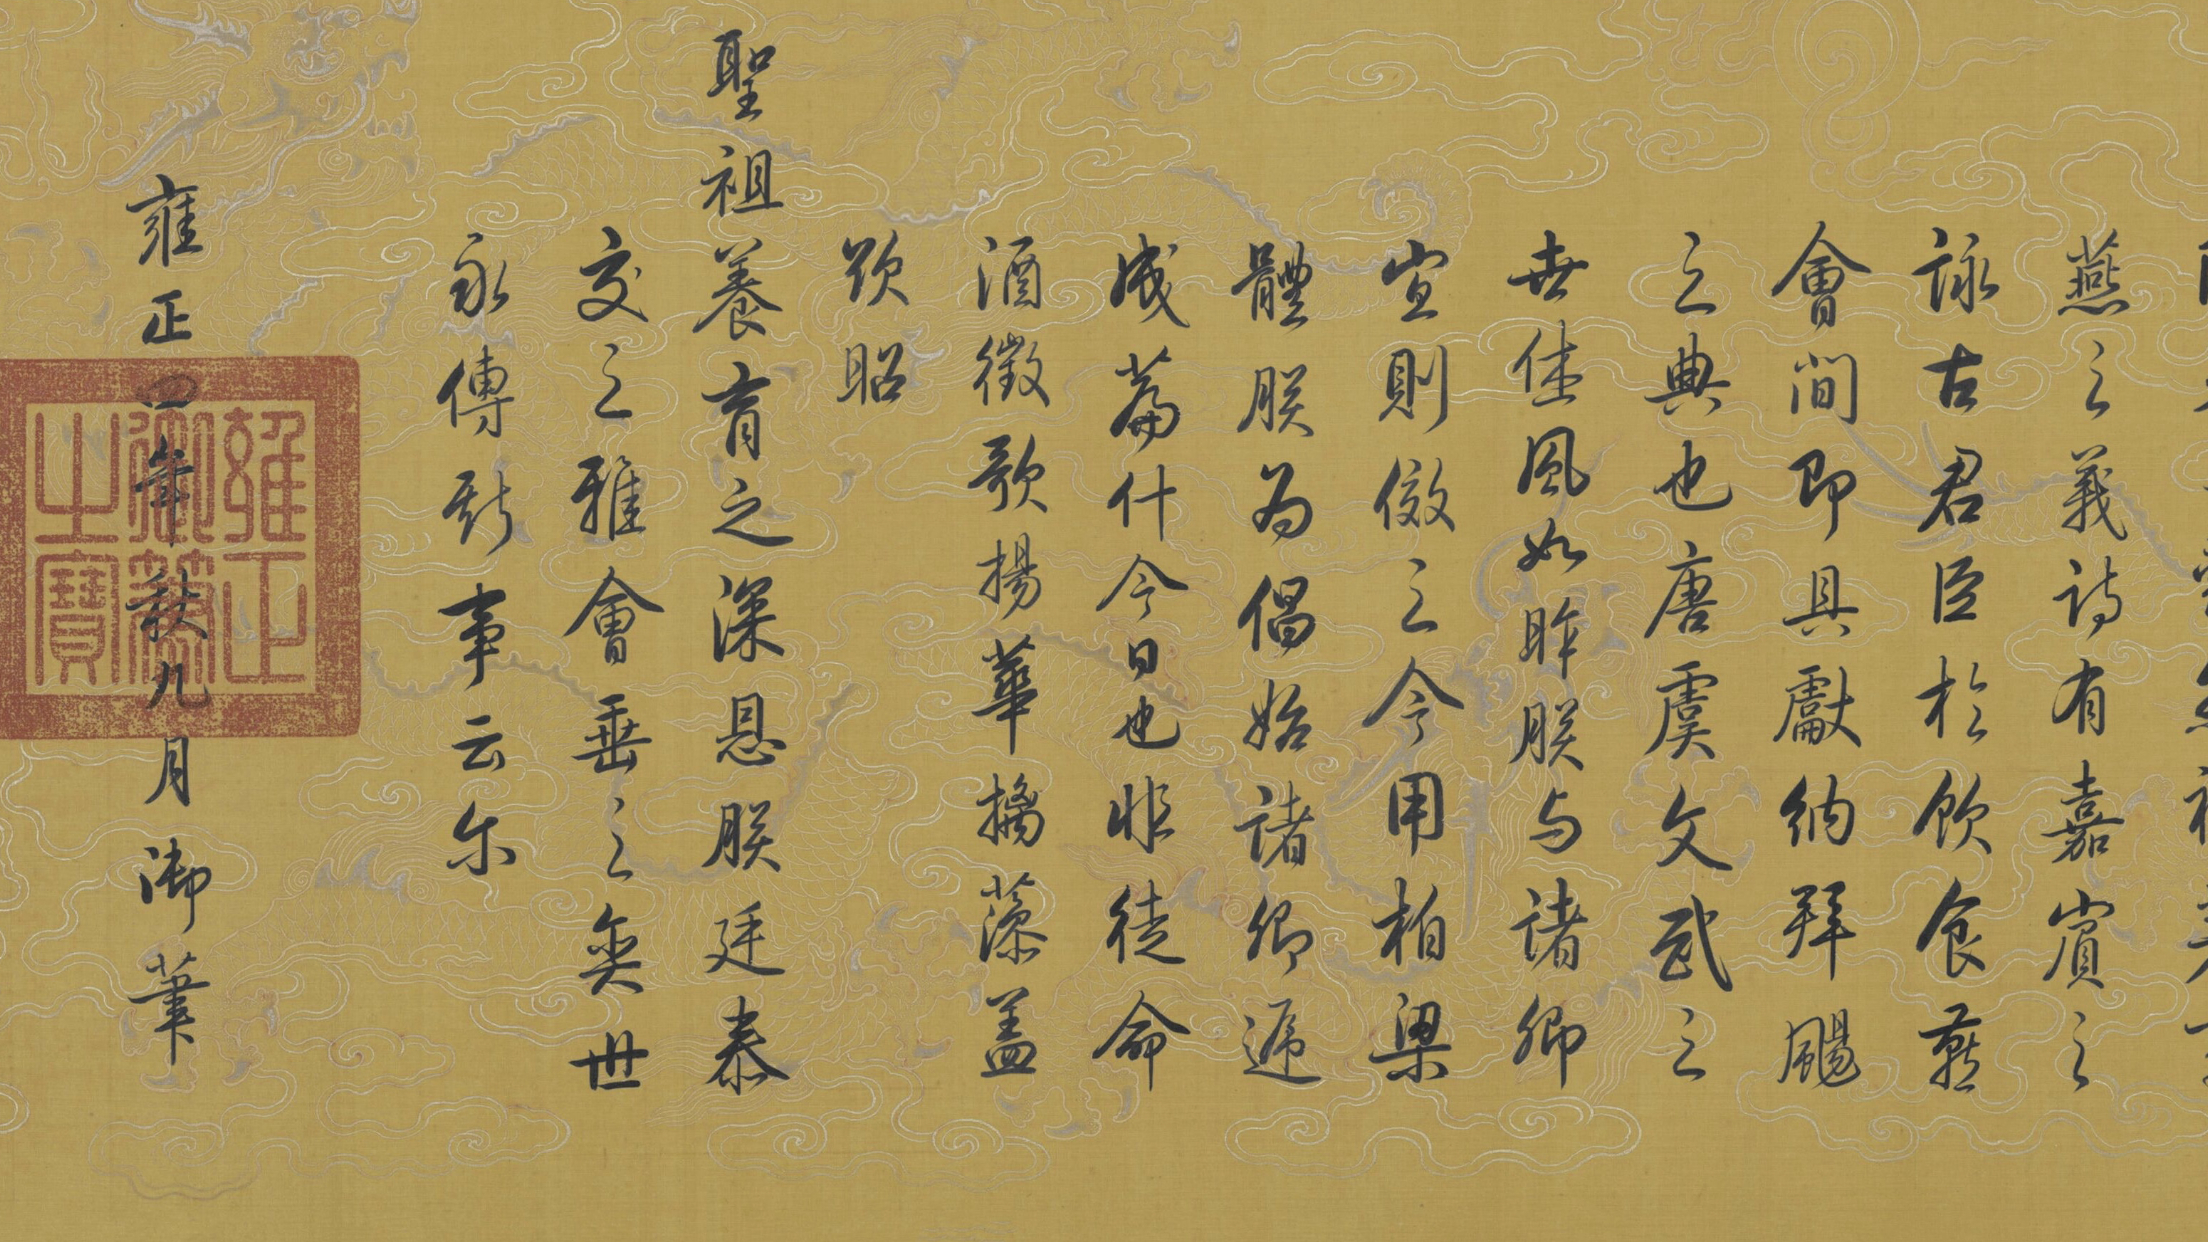 燕之義詩有嘉賓之
詠古君臣於飲食燕
會間即具獻納拜颺
之典也唐虞文武之
世佳風如眸朕与諸卿
宜則傚之今用柏梁
體朕为倡始諸卿遞
成篇什今日也非徒命
酒徵歌揚華摛藻蓋
欲昭
聖祖養育之深恩朕廷泰
交之雅會垂之奕世
永傳斯事云尔
雍正四年秋九月御筆
雍正御筆之寶